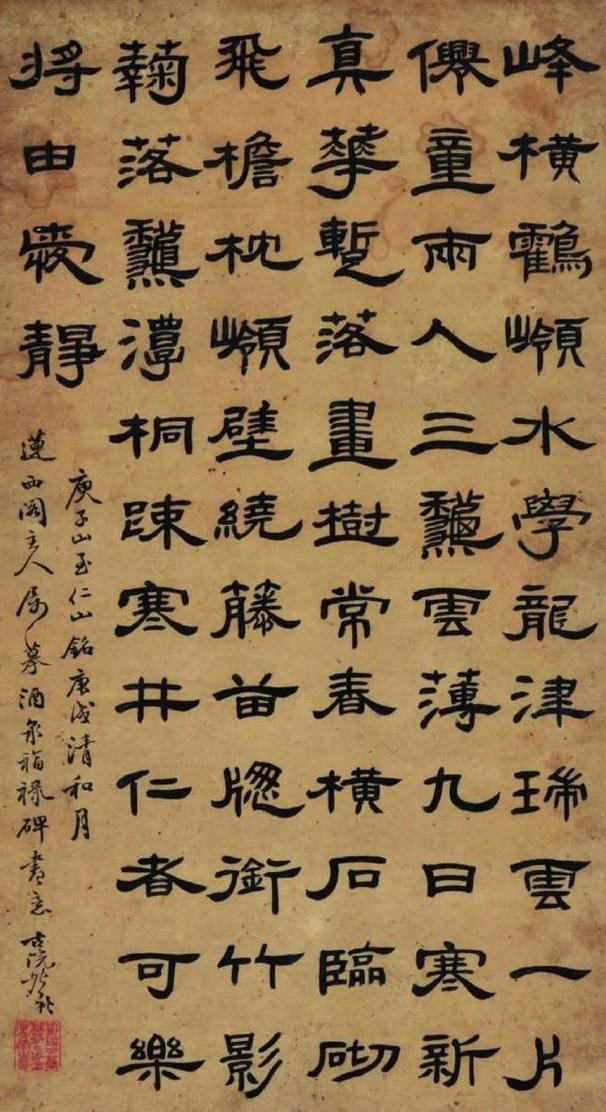 峰橫鸖嶺水學龍津瑞雲一片
僊童兩人三龝雲薄九日寒新
真華暫落畫樹常春橫石臨砌
飛檐枕嶺壁繞藤苗牕銜竹影
蘜落龝潭桐疎寒井仁者可樂
將由愛靜
庚子山至仁山銘庚戌清和月
蓮西閣主人属摹酒泉福祿碑書意古浣